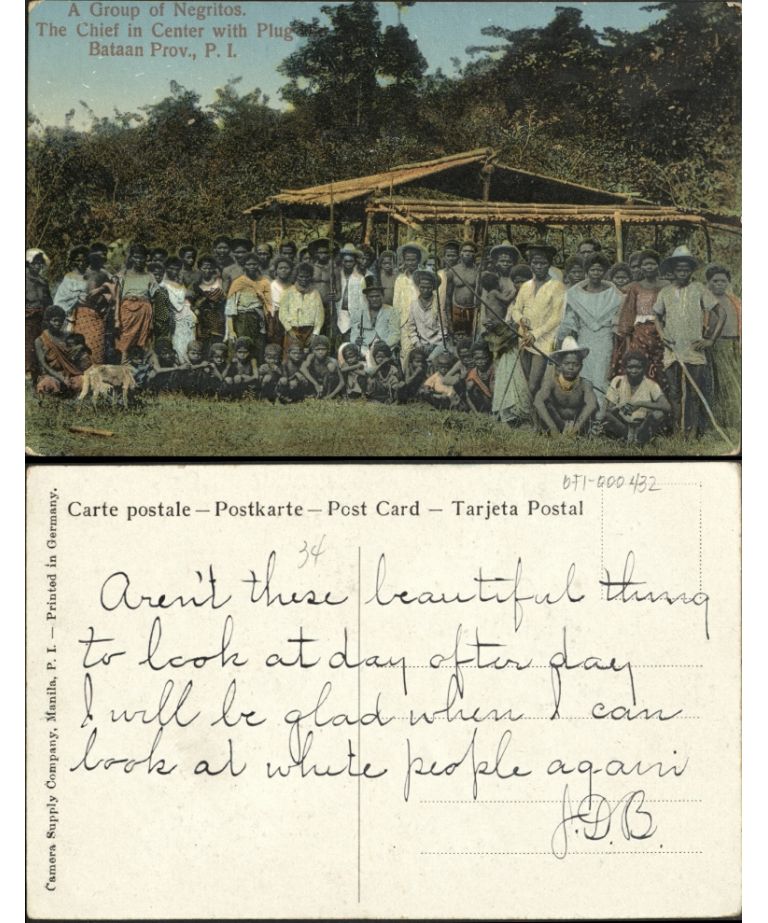 A Group of Negritos.
The Chief in Center with Plug
Bataan Prov., P. I.
Carte postale — Postkarte — Post Card — Tarjeta Postal
34
Aren't these beautiful thing
to look at day after day
I will be glad when I can
look at white people again
J.D.B.
Camera Supply Company, Manila, P. I. — Printed in Germany.